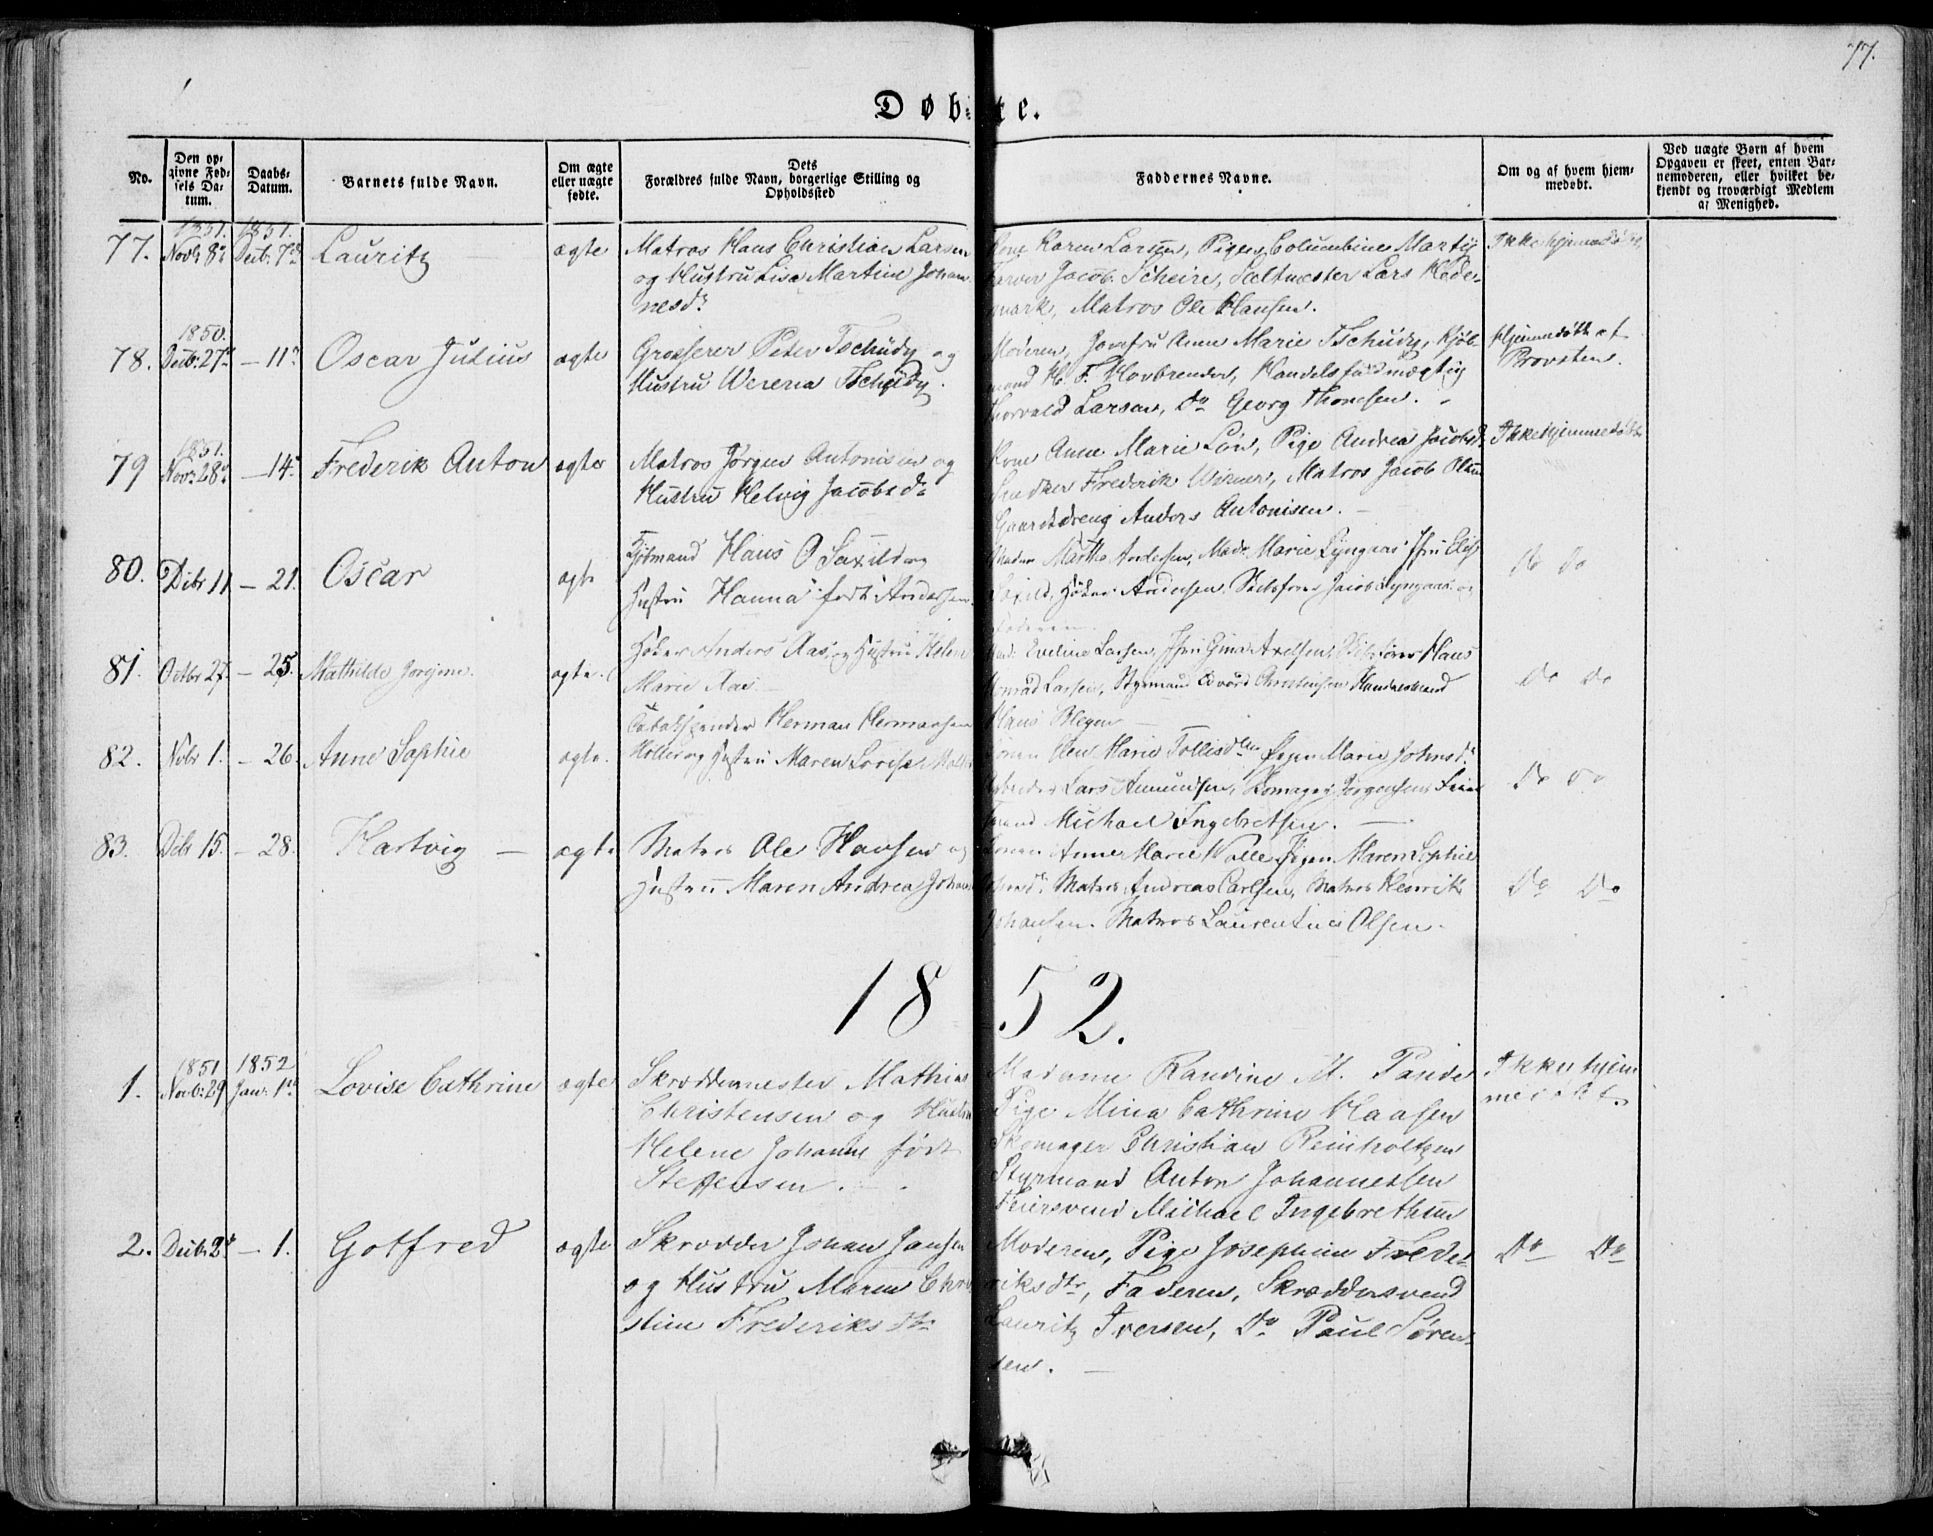 77.
Døbte.
No.
Den opgivne Fødsels Datum.
Daabs-Datum.
Barnets fulde Navn.
Om ægte eller uægte fødte.
Dets Forældres fulde Navn, borgerlige Stilling og Opholdssted
Faddernes Navne.
Om og af hvem hjemmedøbt.
Ved uægte Børn af hvem Opgaven er skeet, enten Barnemoderen, eller hvilket bekjendt og troværdigt Medlem af Menighed.
1851. 1851.
77. Novb: 8de Decb: 7de Lauritz ægte Matros Hans Christian Larsen
og Hustru Lisa Martine Johan
nesdr
Kone Karen Larsen, Pigen Columbine Marty
Farver Jacob Scheire, Lars Hede-
mark, Matros Ole Hansen.
Ikke hjemmedøbt
1850.
78. Decb: 27de - 11te Oscar Julius ægte Grosserer Peter Tschudy og
Hustru Werena Tschudy.
Moderen, Jomfru Anne Marie Tschudy, Kjøb-
mand H. F. Hovbrender, Handelsfuldmægtig
Thorvald Larsen, Do Georg Thomesen.
Hjemmedøbt af
Provsten.
1851.
79 Nov: 28de - 14de Frederik Anton ægte Matros Jørgen Antonisen og
Hustru Helvig Jacobsdr
Kone Anne Marie Lön, Pige Andrea Jacobsd.
Snedker Frederik Wirner, Matros Jacob Olsen
Gaardsdreng Anders Antonisen.
Ikke hjemmedøbt
80. Dcbr 11 - 21. Oscar ægte Kjøbmand Hans O Saxild og
Hustru Hanna født Andersen.
Madm Martha Andersen, Mad. Marie Lyngaas Jfru Elis
Saxild, Høker Andersen, Skibsfører Jacob Lyngaas og
Faderen.
Do Do
81. Octbr 27. - 25. Mathilde Jorgine. ægte. Høker Anders Aas og Hustru Helene
Marie Aas
Evelina Larsen, Jfru Gina Axelsen, Skibsfører Hans
Konrad Larsen, Styrmand Edvard Christensen Handelsmand
Hans Blegen
Do Do
82. Nvbr 1. - 26. Anne Sophie ægte. Tobakspinder Herman Hermansen
Møller og Hustru Maren Lovise Møller
Konen Marie Tollisdtr Pigen Marie Johnsdr
Lars Amundsen, Skomager Jørgensen Feier
svend Michael Ingebretsen.
Do Do
83. Dcbr 15. - 28. Hartvig ægte Matros Ole Hansen og
Hustru Maren Andrea Johans
Konen Anne Marie Wolle Pigen Maren Sophie
Johnsdr. Matros Andreas Carlsen, Matros Henrik
Johansen. Matros Laurentius Olsen.
Do Do
1852.
1851 1852
1. Novb: 29 Janr. 1ste Lovise Cathrine ægte Skræddermester Mathias
Christensen og Hustru
Helene Johanne født
Steffensen.
Madame Randine M. Pande
Pige Mina Cathrine Haasen
Skomager Christian Reinholtzen
Styrmand Anton Johannessen
Feiersvend Michael Ingebrethsen
Ikke hjem
medøbt.
2. Decb: 2de - 1. Gotfred ægte Skrædder Johan Jansen
og Hustru Maren Chri
stine Frederiksdtr
Moderen, Pige Josephine Frede-
riksdtr, Faderen, Skræddersvend
Lauritz Iversen, Do Paul Søren-
sen.
Do Do